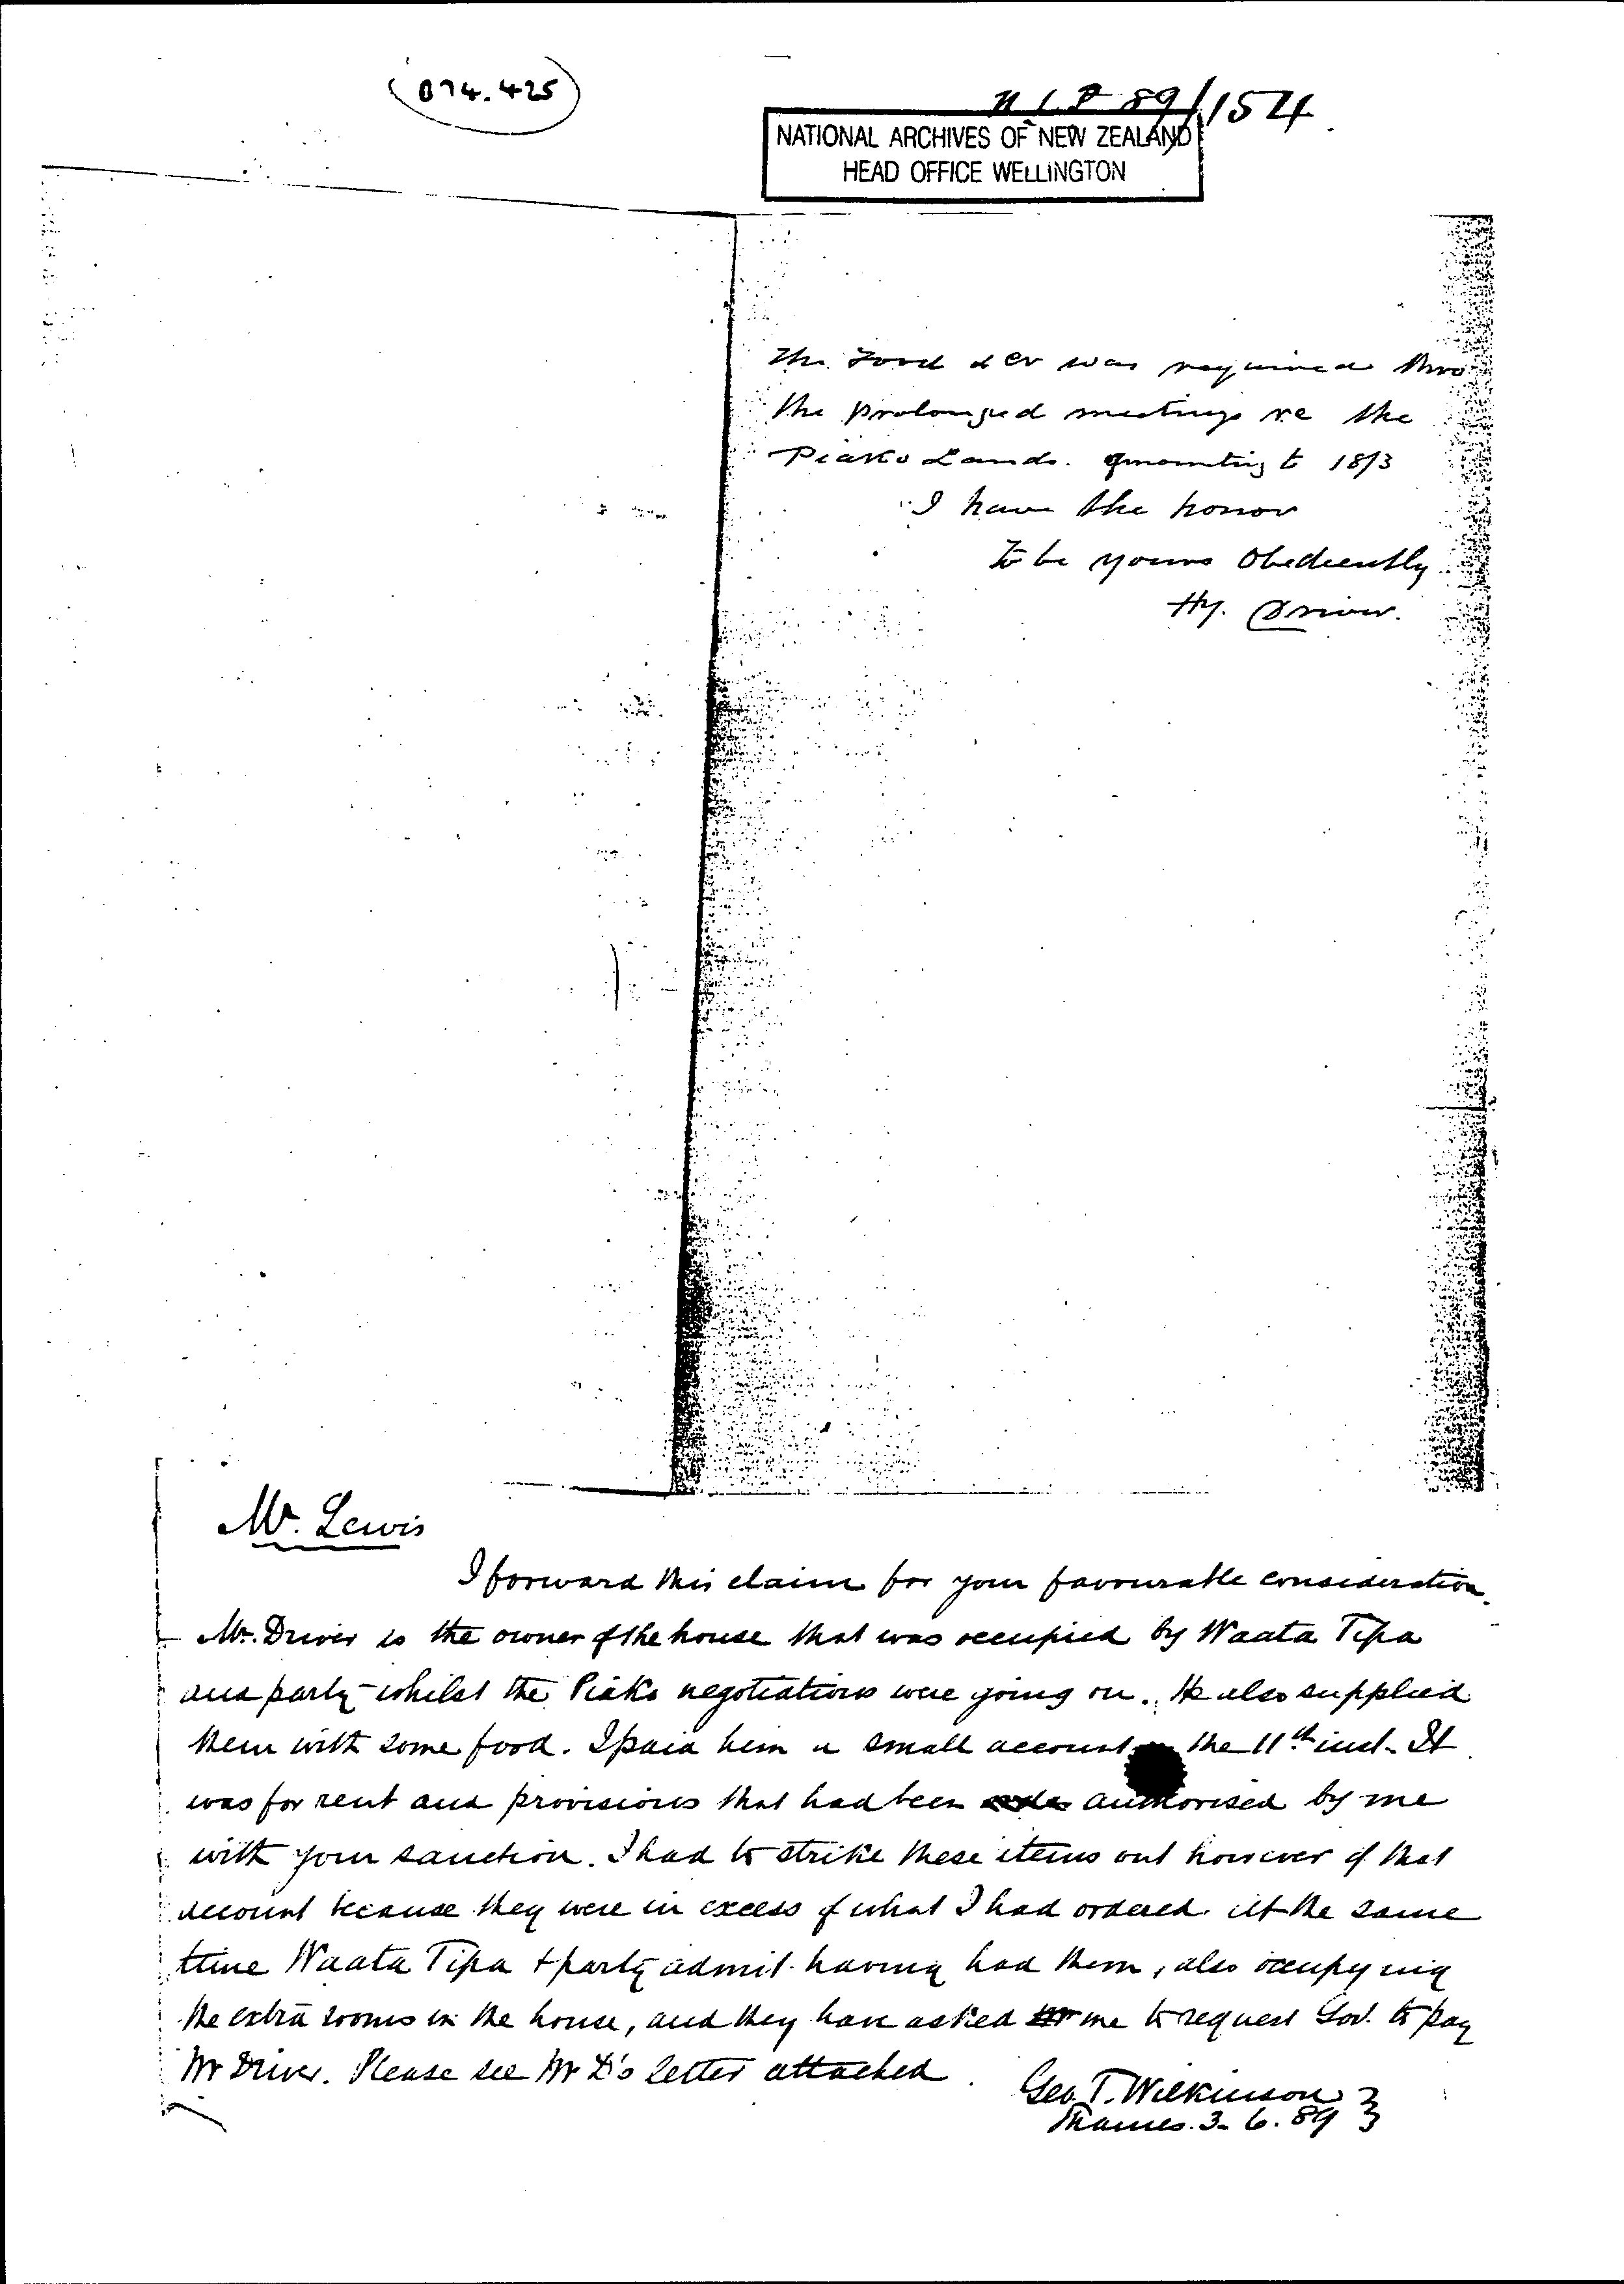 074.425
NLP 89/154
NATIONAL ARCHIVES OF NEW ZEALAND
HEAD OFFICE WELLINGTON
The Food &cr was required thro
the prolonged meetings re the
Piako Lands. amounting to 18/3
I have the honor
to be yours Obediently
Hy. Driver.
Mr. Lewis
I forward this claim for your favourable consideration.
Mr. Driver is the owner of the house that was occupied by Waata Tipa
and party whilst the Piako negotiations were going on. He also supplied
them with some food. I paid him a small account the 11th inst. It
was for rent and provisions that had been authorised by me
with your sanction. I had to strike these items out however of that
account because they were in excess of what I had ordered. At the same
time Waata Tipa + party admit having had them, also occupying
the extra rooms in the house, and they have asked me to request Gov. to pay
Mr Driver. Please see Mr D's letter attached.
Geo. T. Wilkinson
Thames. 3. 6. 89